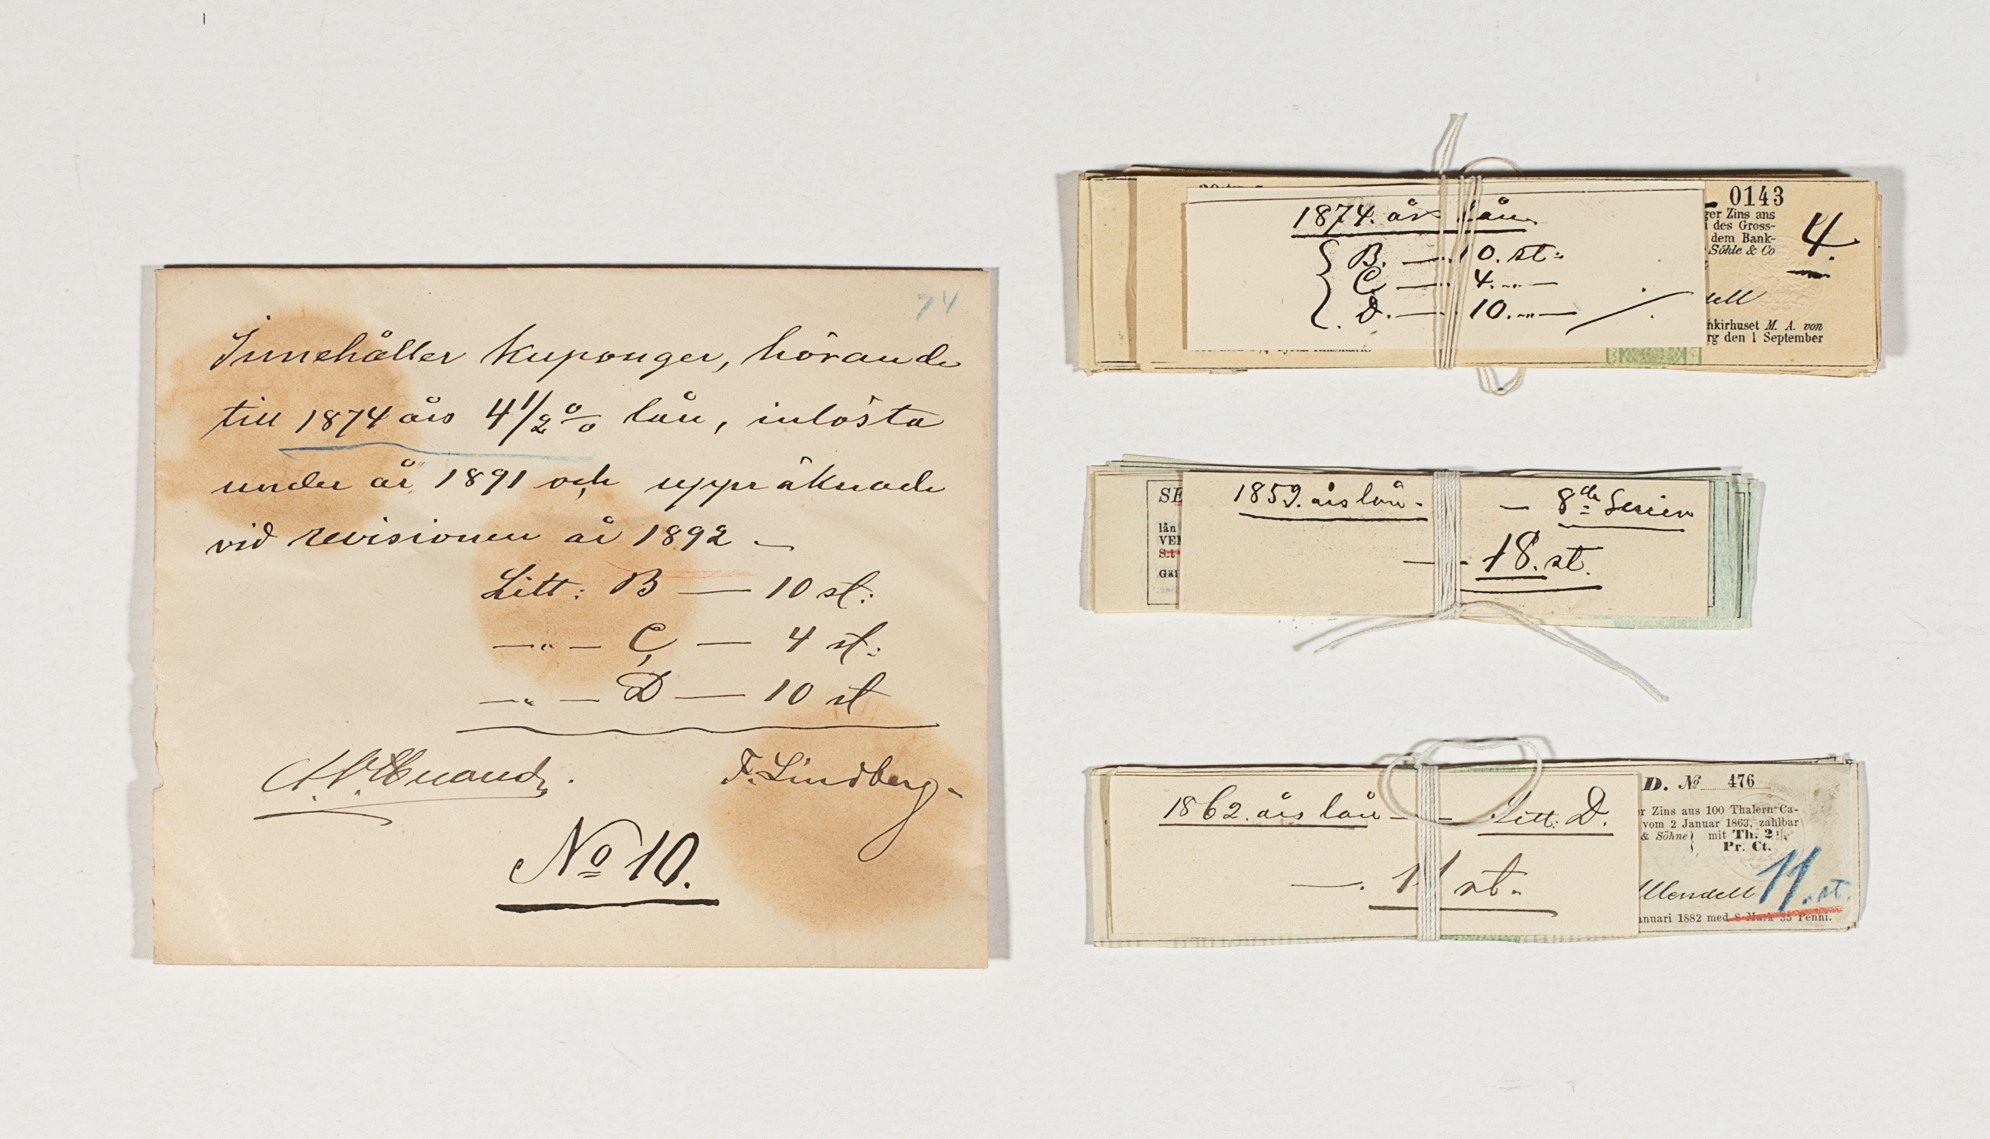 74
Innehåller kuponger, hörande
till 1874 års 4 1/2 % lån, inlösta
under år 1891 och uppräknade
vid revisionen år 1892 —
Litt: B — 10 st:
—"— C — 4 st:
—"— D — 10 st
F. Lindberg
No 10.
1874. års lån
B. — 10. st:
C — 4. —"—
D. — 10. —"—
0143
ger Zins ans
des Gross-
dem Bank-
Söhle & Co
4.
dell
nkirhuset M. A. von
rg den 1 September
1859. års lån. — 8de Serien
— 18. st.
SE
lån
VER
S:t
Gäl
1862. års lån — Litt. D.
—. 11 st.
D. No 476
r Zins aus 100 Thalern Ca-
vom 2 Januar 1863, zahlbar
& Söhne) mit Th. 2
Pr. Ct.
Mendell
11. st.
anuari 1882 med 8 Mark 35 Penni.